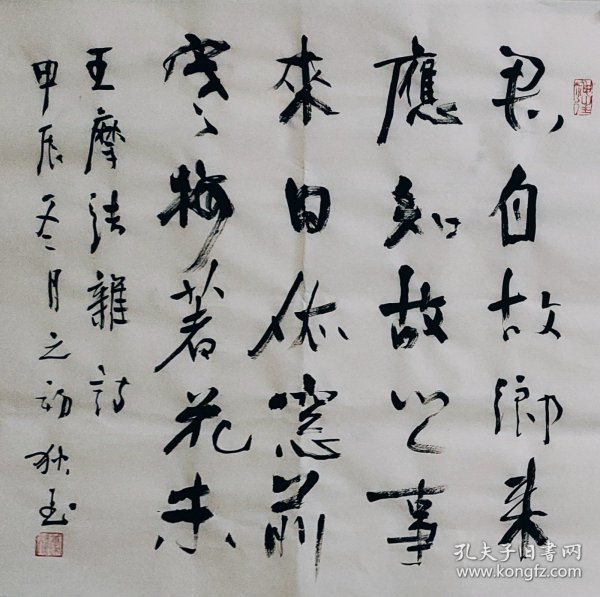 君自故鄉来
應知故鄉事
來日依窓前
寒梅著花未
王摩詰雜詩
甲辰冬月之初
孔夫子旧书网
www.kongfz.com